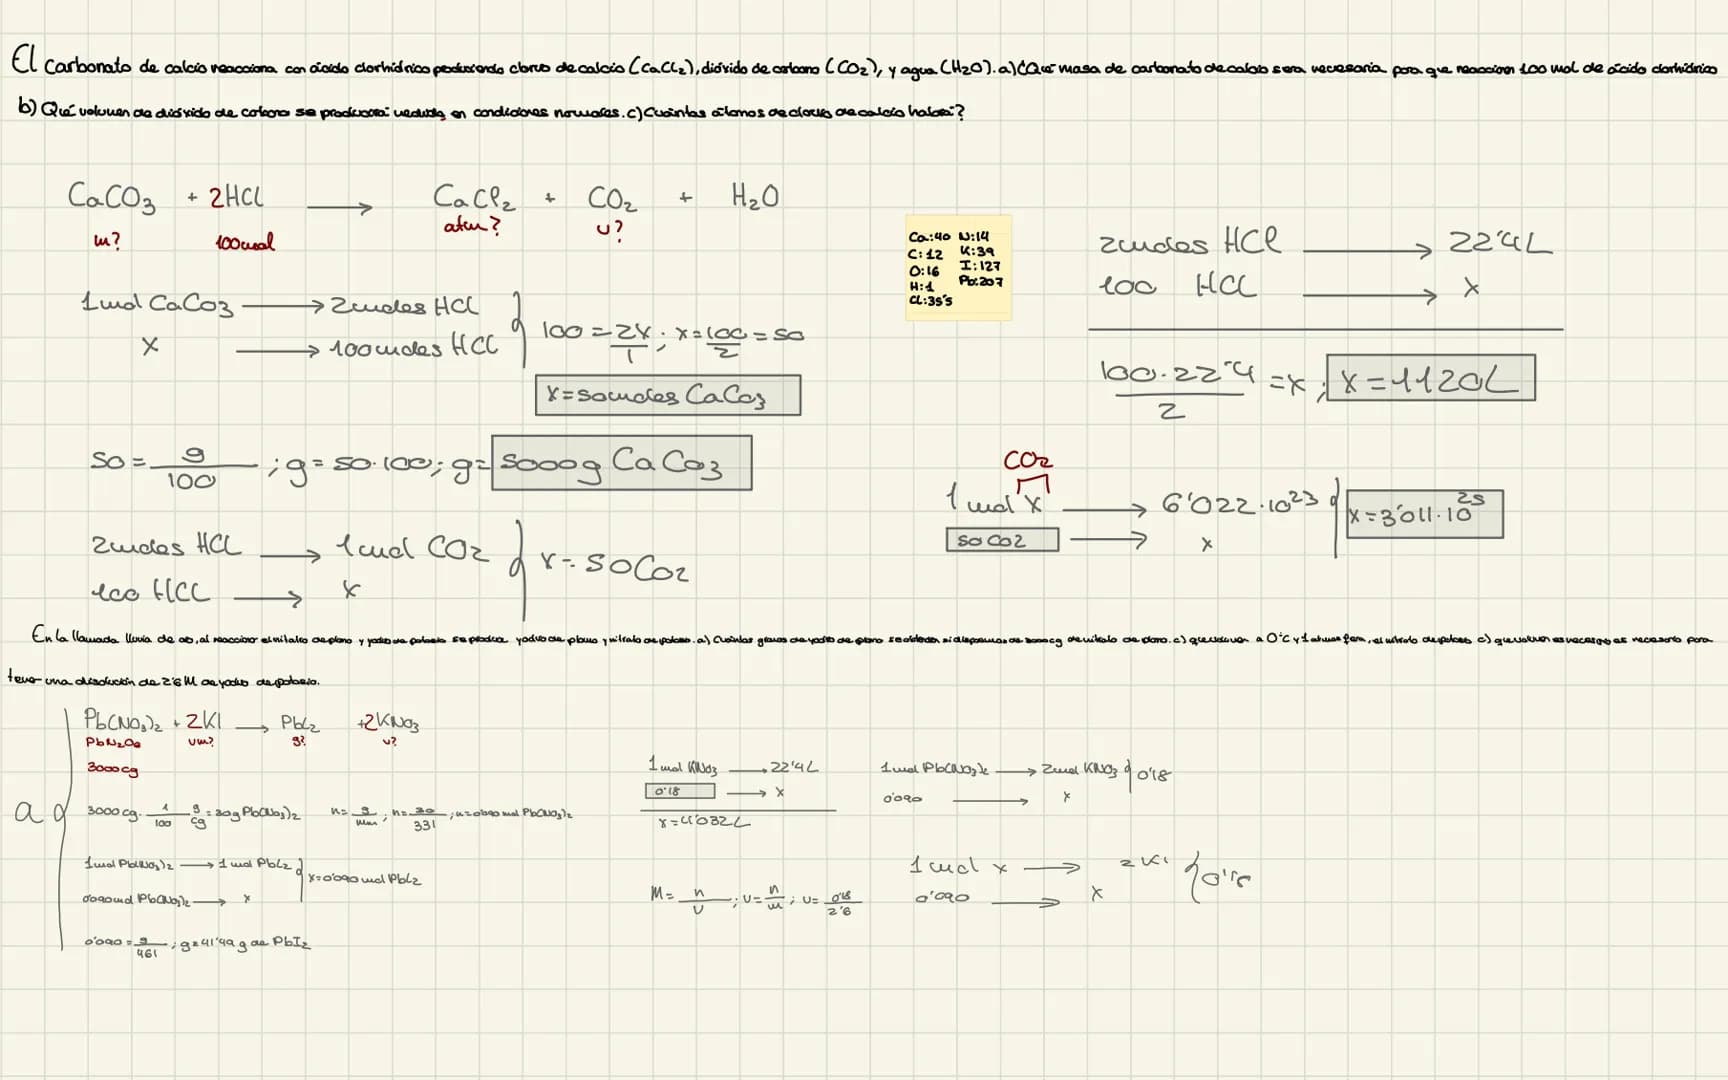 El Carbonato de calcio reacciona con ácido clorhídrico produciendo cloruro de calcio (CaCl₂), dióxido de carbono (CO₂), y agua (H₂O). a) ¿Qué masa de carbonato de calcio sera necesaria para que reaccionen 100 mol de ácido clorhídrico
b) Qué volumen de dióxido de carbono se producirá medido en condiciones normales. c) Cuántos átomos de cloruro de calcio habrá?
CaCO₃ + 2HCl → CaCl₂ + CO₂ + H₂O
m? 100mol atm? v?
1mol CaCO₃ → 2moles HCl
x → 100moles HCl
100 = 2x/1 ; x = 100/2 = 50
x = 50moles CaCO₃
50 = g/100 ; g = 50·100; g = 5000g CaCO₃
2moles HCl → 1mol CO₂
100 HCl → x
x = 50CO₂
Ca:40 N:14
C:12 K:39
O:16 I:127
H:1 Pb:207
Cl:35'5
2moles HCl → 22'4L
100 HCl → x
100·22'4/2 = x ; x = 1120L
CO₂
1 mol x → 6'022·10²³
50 CO₂ → x
x = 3'011·10²⁵
En la llamada lluvia de oro, al reaccionar el nitrato de plomo y yoduro de potasio se produce yoduro de plomo y nitrato de potasio. a) Cuántos gramos de yoduro de plomo se obtienen si disponemos de 3000cg de nitrato de plomo. c) que volumen a 0°C y 1 atmosfera, el nitrato de potasio c) que volumen es necesario es necesario para
tener una disolución de 2'6 M de yoduro de potasio.
a
Pb(NO₃)₂ + 2KI → PbI₂ + 2KNO₃
PbN₂O₆ vm? g? v?
3000cg
3000cg · 1/100 g/cg = 30g Pb(NO₃)₂ n = g/mm ; n = 30/331 ; n = 0'090 mol Pb(NO₃)₂
1mol Pb(NO₃)₂ → 1 mol PbI₂
0'090mol Pb(NO₃)₂ → x
x = 0'090 mol PbI₂
0'090 = g/461 ; g = 41'49 g de PbI₂
1 mol KNO₃ → 22'4L
0'18 → x
x = 4'032L
1mol Pb(NO₃)₂ → 2mol KNO₃
0'090 → x
0'18
M = n/v ; v = n/m ; v = 0'18/2'6
1 mol x → 2KI
0'090 → x
0'18